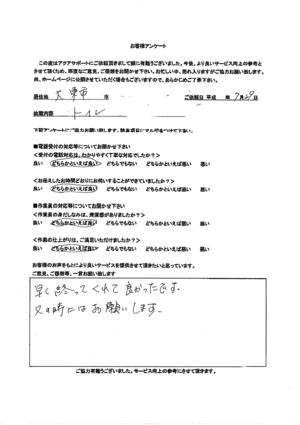 お客様アンケート
この度はアクアサポートにご依頼頂きまして誠に有難うございました。今後、より良いサービス向上の参考と
させて頂くため、率直なご意見、ご感想をお聞かせ下さい。お忙しい中、恐れ入りますがご協力お願い致します。
尚、ホームページに公開させていただく場合もございますので、あらかじめご了承下さい。
居住地 大東市 市 ご依頼日 平成 年 7月29日
依頼内容 トイレ
下記アンケートにご協力お願い致します。該当項目に丸を付けて下さい。
■電話受付の対応等についてお聞かせ下さい
<受付の電話対応は、わかりやすく丁寧な対応でしたか?>
良い どちらかといえば良い どちらでもない どちらかといえば悪い 悪い
<お伝えしたお時間どおりにお伺いすることができていましたか?>
良い どちらかといえば良い どちらでもない どちらかといえば悪い 悪い
■作業員の対応等についてお聞かせ下さい
<作業員の身だしなみは、清潔感がありましたか?>
良い どちらかといえば良い どちらでもない どちらかといえば悪い 悪い
<作業の仕上がりは、ご満足いただけましたか?>
良い どちらかといえば良い どちらでもない どちらかといえば悪い 悪い
お客様のお声をもとにより良いサービスを提供させて頂きたいと思っています。
ご意見、ご感想等、一言お願い致します
早く終ってくれて良かったです。
又の時にはお願いします。
ご協力有難うございました。サービス向上の参考にさせて頂きます。